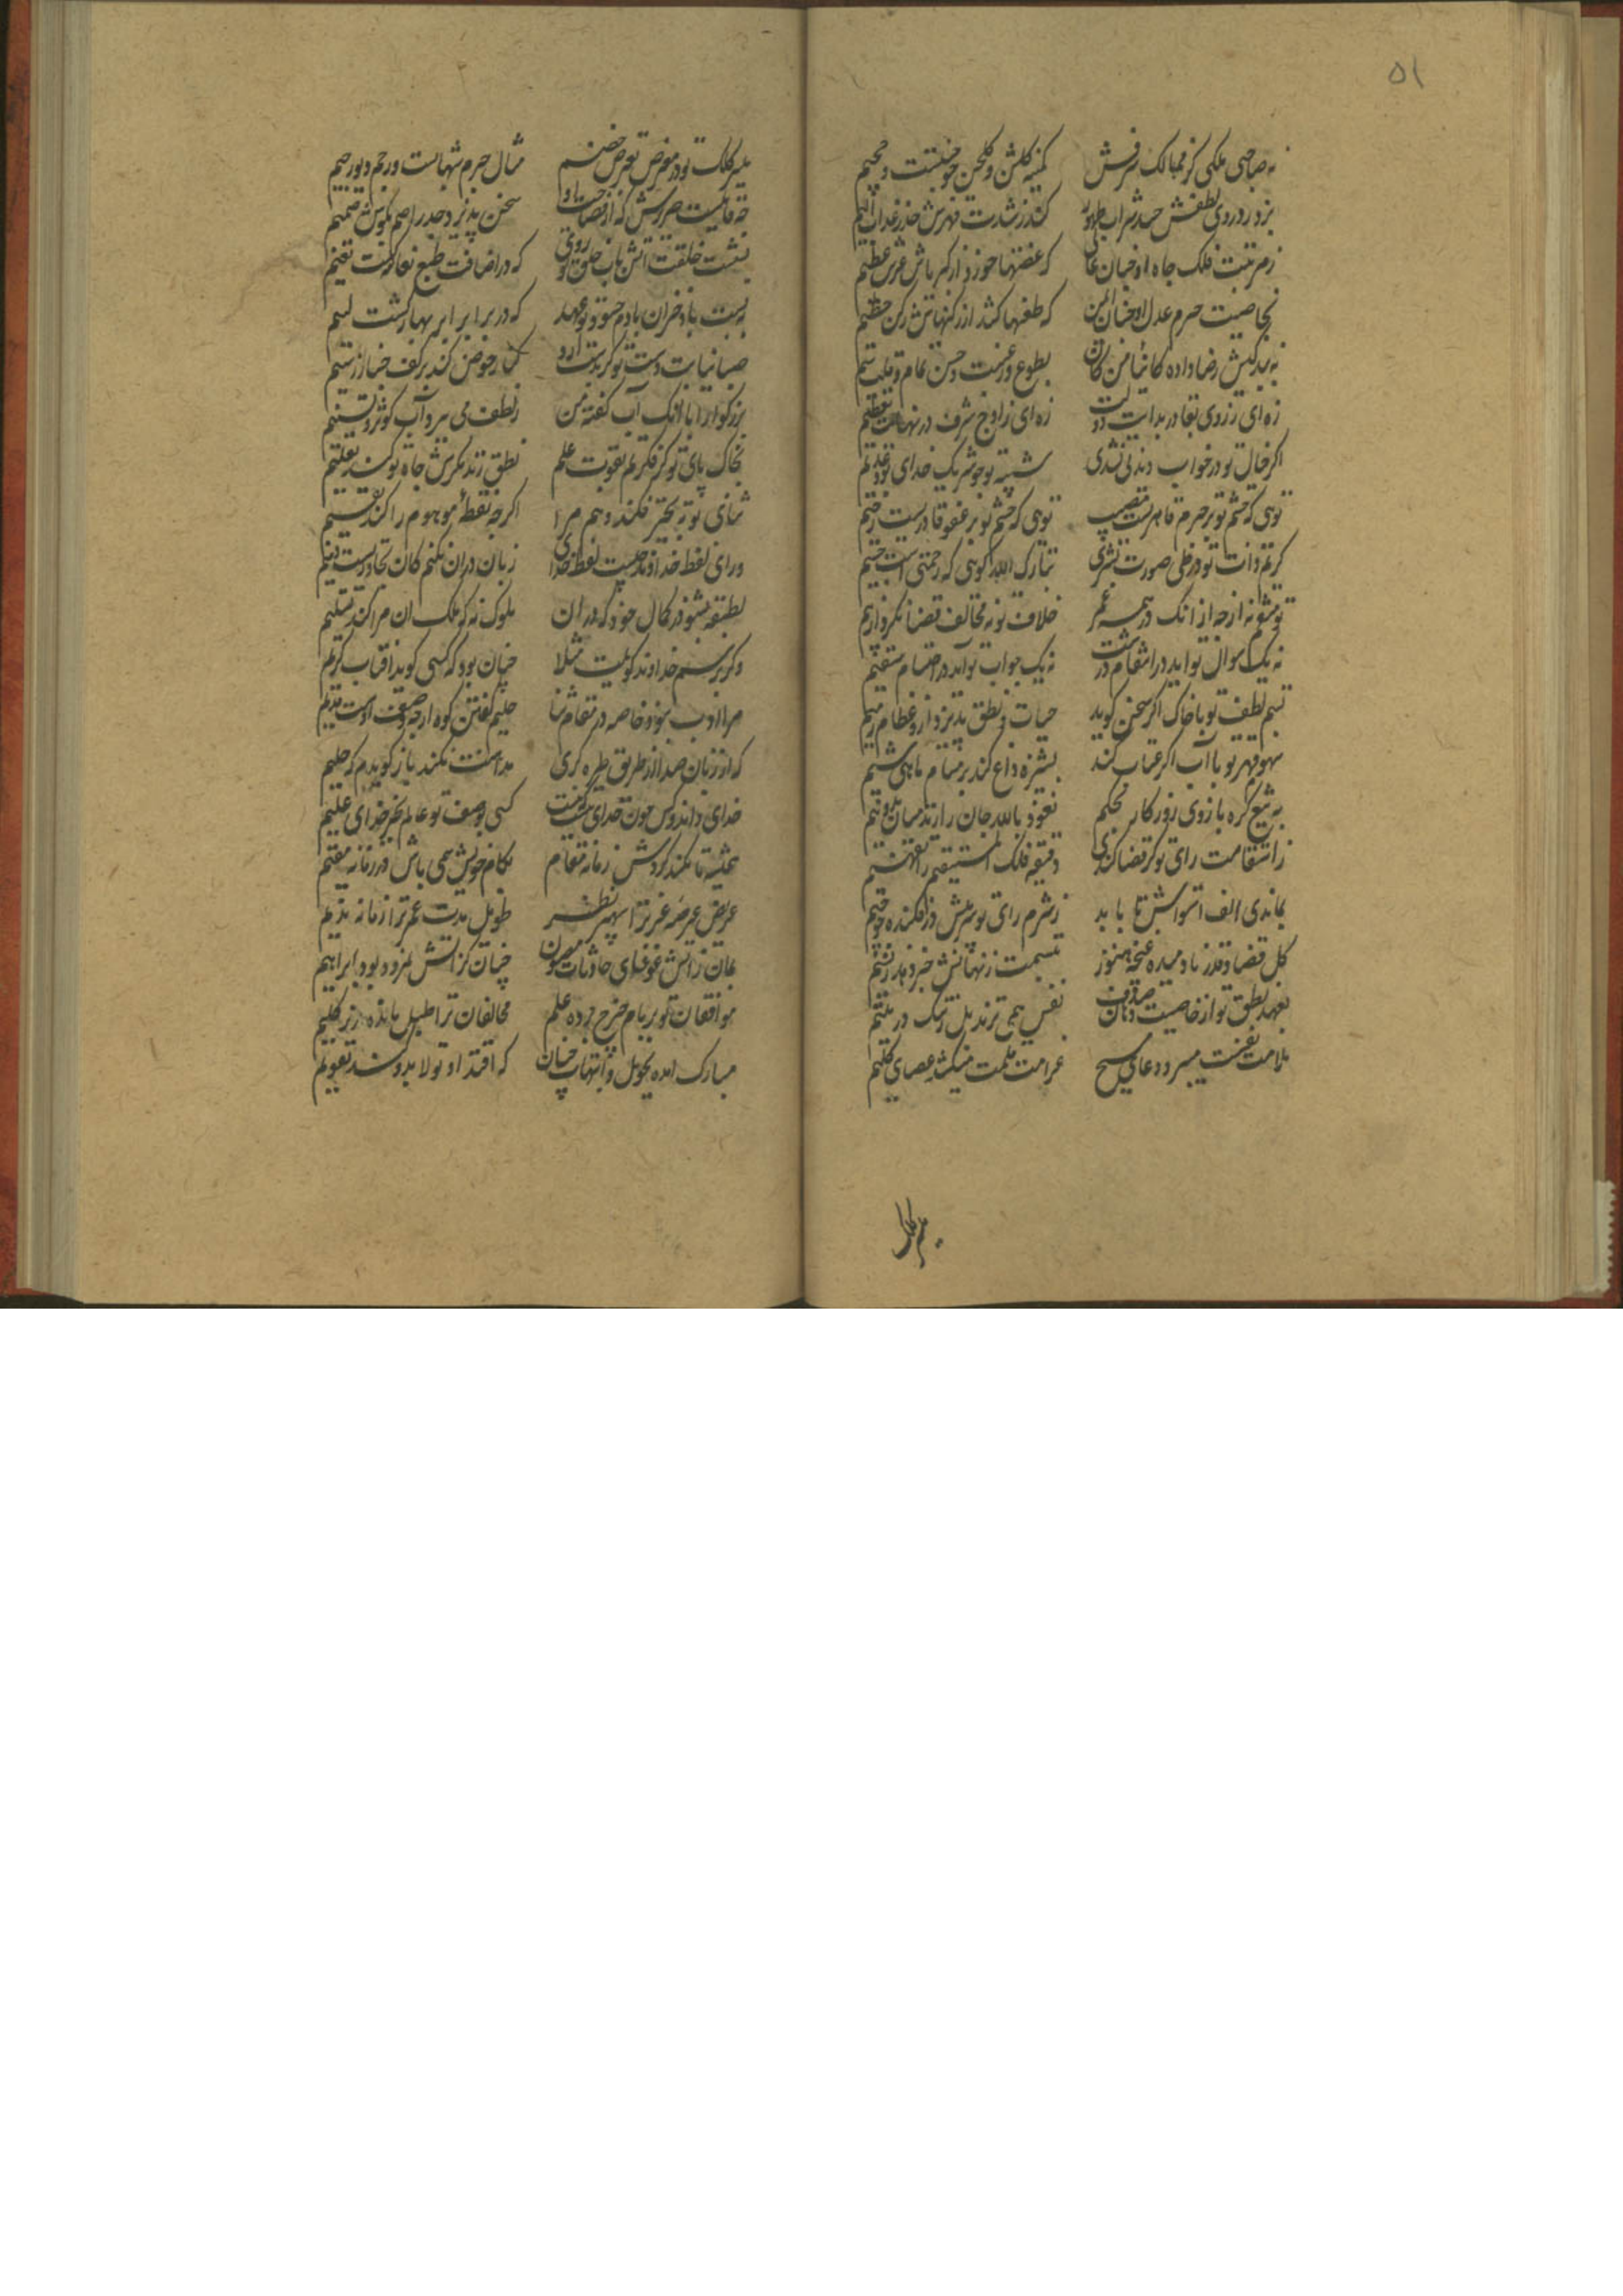 ۵۱
به صاحبی ملکی کز ممالک شرفش کمینه گلشن و گلخن چو جنتست و جحیم
برد ز روی لطفش حسد شراب طهور کند ز شدت قهرش حذر عذاب الیم
ز مرتبت فلک جاه او چنان عالی که غصنها خورد از کبریاش عرش عظیم
بخاصیت حرم عدل او چنان ایمن که طعنها کشد از رکنهاش رکن حطیم
به بندگیش رضا داده کائنا من کان بطوع و رغبت و حسن تمام و قلب سلیم
زه ای ز روی بقا در بدایت دولت زه ای ز اوج شرف در نهایت تعظیم
اگر خیال تو در خواب دیدنی نشدی شبیه تو چو شریک خدای بود عدیم
تویی که خشم تو بر جرم قاهریست مصیب تویی که چشم تو بر عفو قادریست رحیم
کریم ذات تو در طی صورت بشری تبارک الله گویی که رحمتی است جسیم
تو منتقم نه ازچه از آنک در همه عمر خلاف تو نه مخالف قضا نکرد ازیم
نه یک سوال تو آید در انتقام درشت نه یک جواب تو آید در احتشام سقیم
نسیم لطف تو با خاک اگر سخن گوید حیات و نطق پذیرد ازو عظام رمیم
سموم قهر تو با آب اگر عتاب کند پشیزه داغ کند بر مسام ماهی شیم
به تیغ کره بازوی روزگار محکم نعوذ بالله جان را زند میان به دو نیم
ز استقامت رای تو گر قضا کندی دقیقه فلک المستقیم را تقویم
بماندی الف استواش تا بابد ز شرم رای تو سر پیش در فکنده چو جیم
گل قضا و قدر نا دمیده غنچه هنوز نسیمت ز نهانش خبر دهد ز نسیم
بعهد نطق تو از خاصیت دهان صدف نفس همی نزند بل ز ننگ در یتیم
ملامت نفست میبرد دعای مسیح غرامت قلمت میکشد عصای کلیم
مسیر کلک
مسیر کلک تو در معرض تعرض خصم مثال جرم شهابست و رجم دیو رجیم
چه قابلست صریرش که از فصاحت او سخن پذیرد جذر اصم بگوش صمیم
بست باد خزان با دم حسود تو عهد که در برابر ابر بهار گشت لئیم
بزرگوارا با آنک آب گفته من ز لطف می ببرد آب کوثر و تسنیم
بخاک پای تو کز فکرتم بقوت علم نطق زند مگرش جاه تو کند تعلیم
ثنای تو به تحیر فکند وهم مرا اگرچه نقطه موهوم را کند تقسیم
ورای لفظ خداوند چیست لفظ خدای زبان در آن نکنم کان تجاوزیست ذمیم
لطیفه بشنو در کمال خود که در آن ملوک نه که ملک آن مرا کند تسلیم
وگر برسم خداوند گویمت مثلا چنان بود که کسی گوید آفتاب کریم
مرا ادب نبود خاصه در مقام ثنا حلیم گفتن کوه ارچه وصف اوست قدیم
که از زبان صدا از طریق طیره گری مداهنت نکند باز گویدم که حلیم
خدای داند و کس چون خدای نیست کسی بوصف تو عالم بجز خدای علیم
همیشه تا نکند گردش زمانه مقام بکام خویش همی باش در زمانه مقیم
عریض عرصه عز ترا سپهر نظیر طویل مدت عمر ترا زمانه ندیم
بمان ز آتش غوغای حادثات مصون چنان کز آتش نمرود بود ابراهیم
موافقان تو بر بام چرخ برده علم مخالفان ترا طبل مانده زیر گلیم
مبارک آمده تحویل و انتهات چنان که اقتدا و تولا بدو کند تقویم